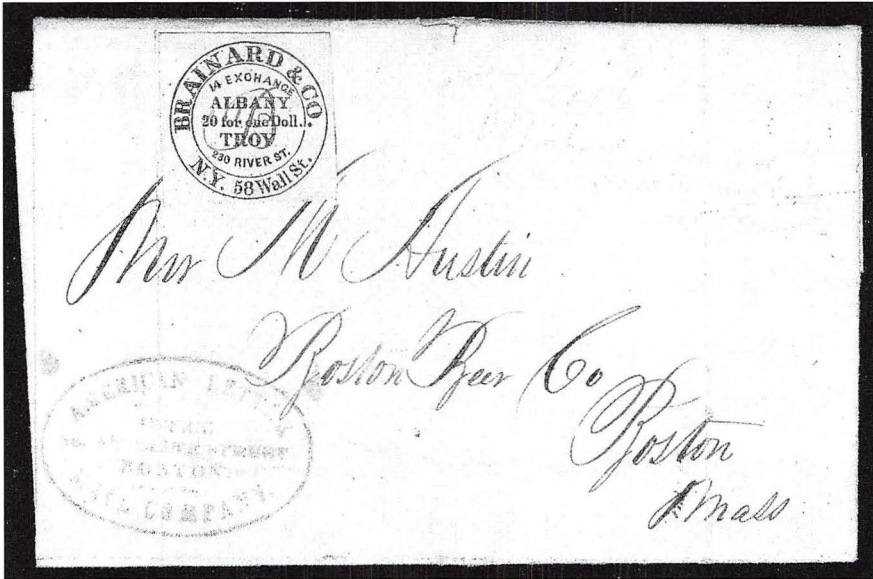 BRAINARD & CO
14 EXCHANGE
ALBANY
20 for one Doll.
TROY
230 RIVER ST.
N.Y. 58 Wall St.
Mr M Austin
Boston Beer Co
Boston
Mass
AMERICAN LETTER
STREET
BOSTON
MAIL COMPANY.